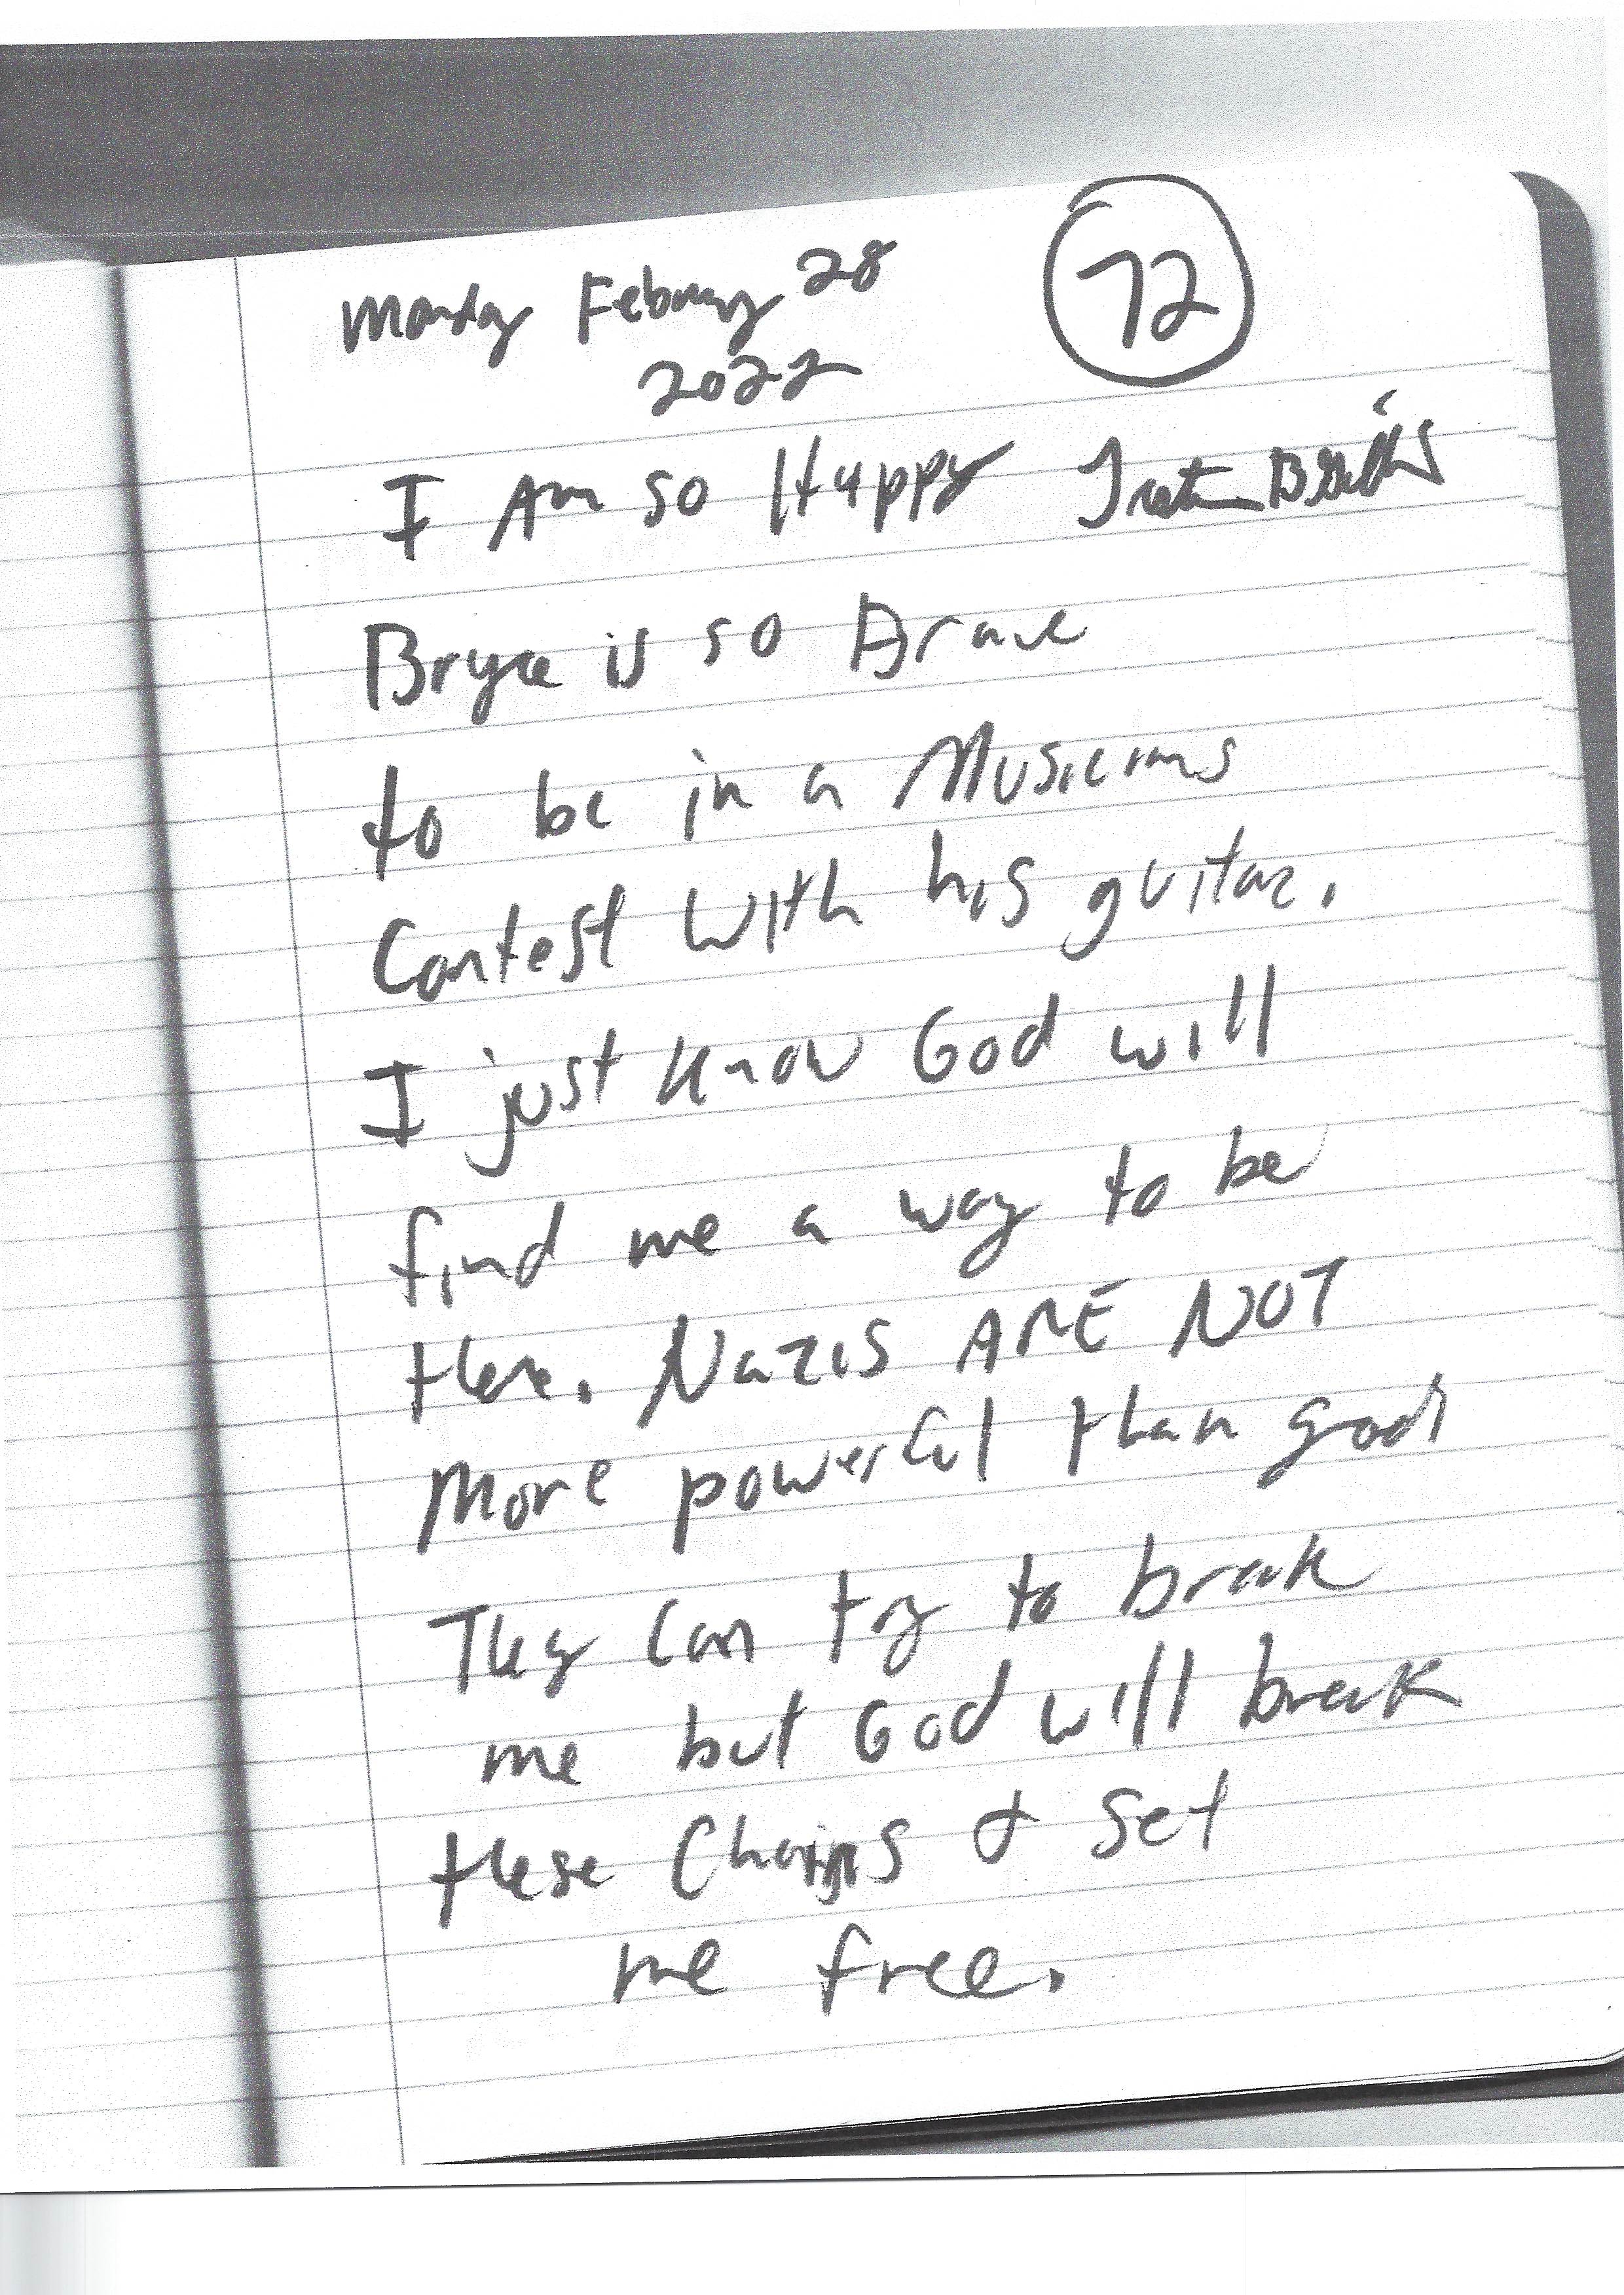 Monday February 28
72
2022
I Am so Happy
Bryce is so Brave
to be in a Musicians
Contest with his guitar.
I just know God will
find me a way to be
there. Nazis ARE NOT
More powerful than god
They can try to break
me but God will break
these Chains & set
me free.